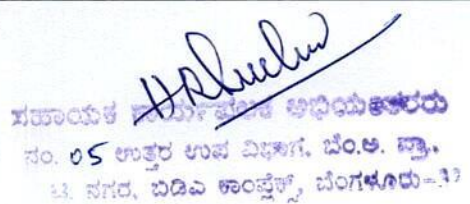 ಸಹಾಯಕ ಕಾರ್ಯಪಾಲಕ ಅಭಿಯಂತರರು
ನಂ. 05 ಉತ್ತರ ಉಪ ವಿಭಾಗ, ಬೆಂ.ಅ. ಪ್ರಾ.,
ನಗರ, ಬಿಡಿಎ ಕಾಂಪ್ಲೆಕ್ಸ್, ಬೆಂಗಳೂರು-